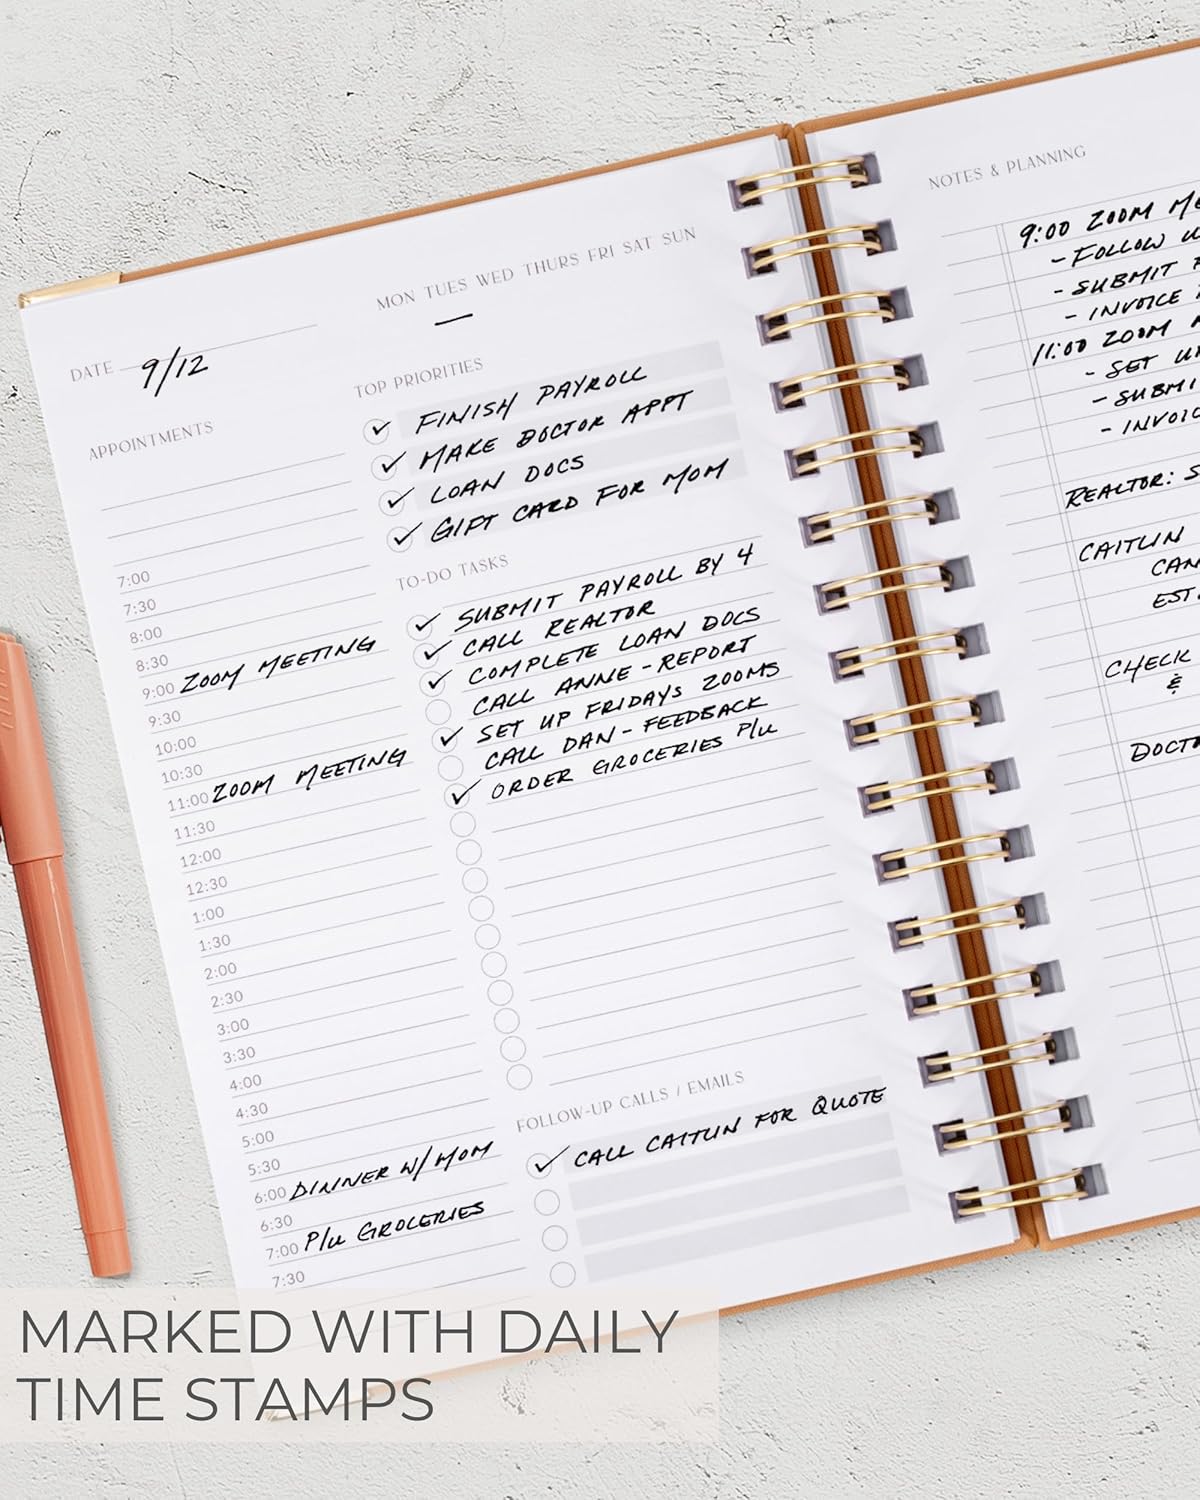 MON TUES WED THURS FRI SAT SUN
DATE 9/12
APPOINTMENTS
7:00
7:30
8:00
8:30
9:00 ZOOM MEETING
9:30
10:00
10:30
11:00 ZOOM MEETING
11:30
12:00
12:30
1:00
1:30
2:00
2:30
3:00
3:30
4:00
4:30
5:00
5:30
6:00 DINNER W/ MOM
6:30
7:00 P/U GROCERIES
7:30
TOP PRIORITIES
FINISH PAYROLL
MAKE DOCTOR APPT
LOAN DOCS
GIFT CARD FOR MOM
TO-DO TASKS
SUBMIT PAYROLL BY 4
CALL REALTOR
COMPLETE LOAN DOCS
CALL ANNE - REPORT
SET UP FRIDAYS ZOOMS
CALL DAN - FEEDBACK
ORDER GROCERIES P/U
FOLLOW-UP CALLS / EMAILS
CALL CAITLIN FOR QUOTE
NOTES & PLANNING
9:00 ZOOM
- FOLLOW
- SUBMIT
- INVOICE
11:00 ZOOM
- SET
REALTOR:
CAITLIN
CHECK
&
MARKED WITH DAILY
TIME STAMPS